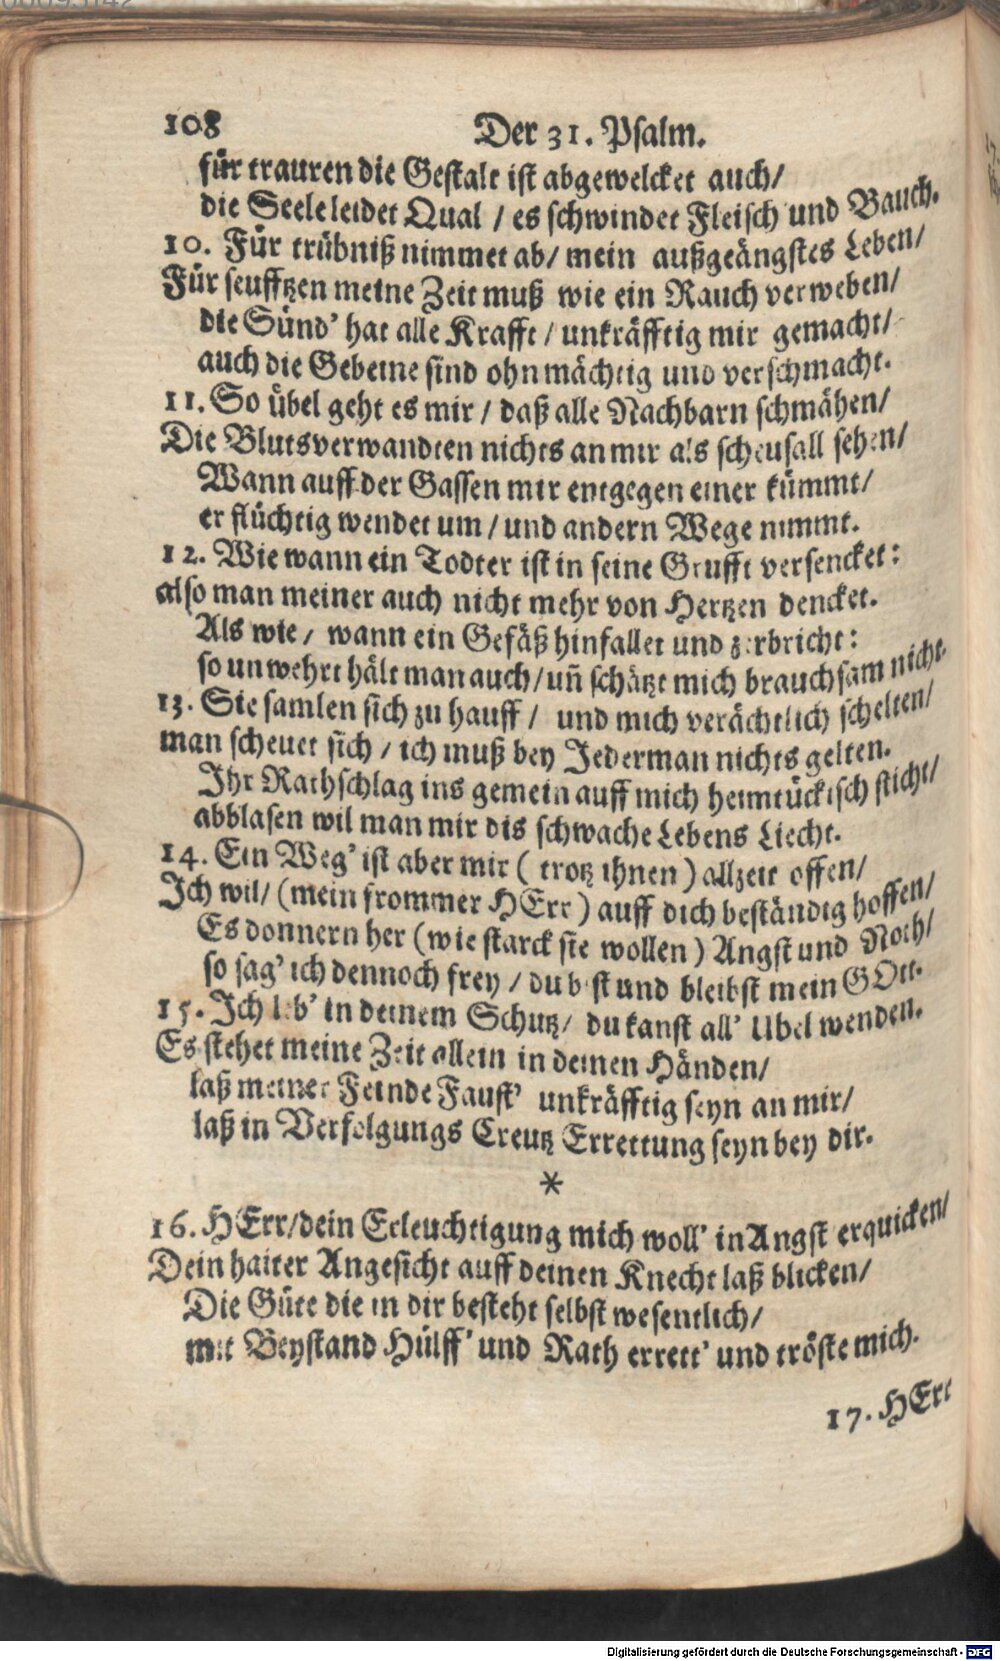 108
Der 31. Psalm.
für trauren die Gestalt ist abgewelcket auch/
die Seele leidet Qual / es schwindet Fleisch und Bauch.
10. Für trübniß nimmet ab/ mein außgeängstes Leben/
Für seufftzen meine Zeit muß wie ein Rauch verweben/
die Sünd' hat alle Krafft / unkräfftig mir gemacht/
auch die Gebeine sind ohnmächtig und verschmacht.
11. So übel geht es mir / daß alle Nachbarn schmähen/
Die Blutsverwandten nichts an mir als scheusall sehen/
Wann auff der Gassen mir entgegen einer kümmt/
er flüchtig wendet um / und andern Wege nimmt.
12. Wie wann ein Todter ist in seine Grufft versencket:
also man meiner auch nicht mehr von Hertzen dencket.
Als wie / wann ein Gefäß hinfallet und zerbricht:
so unwehrt hält man auch/ uñ schätzt mich brauchsam nicht.
13. Sie samlen sich zu hauff / und mich verächtlich schelten/
man scheuet sich / ich muß bey Jederman nichts gelten.
Ihr Rathschlag ins gemein auff mich heimtückisch sticht/
abblasen wil man mir dis schwache Lebens Liecht.
14. Ein Weg' ist aber mir ( trotz ihnen ) allzeit offen/
Ich wil/ (mein frommer HErr ) auff dich beständig hoffen/
Es donnern her (wie starck sie wollen ) Angst und Noth/
so sag' ich dennoch frey / du bist und bleibst mein GOtt.
15. Ich leb' in deinem Schutz/ du kanst all' Ubel wenden.
Es stehet meine Zeit allein in deinen Händen/
laß meiner Feinde Faust' unkräfftig seyn an mir/
laß in Verfolgungs Creutz Errettung seyn bey dir.
*
16. HErr/dein Erleuchtigung mich woll' in Angst erquicken/
Dein haiter Angesicht auff deinen Knecht laß blicken/
Die Güte die in dir besteht selbst wesentlich/
mit Beystand Hülff' und Rath errett' und tröste mich.
17. HErr
Digitalisierung gefördert durch die Deutsche Forschungsgemeinschaft - DFG